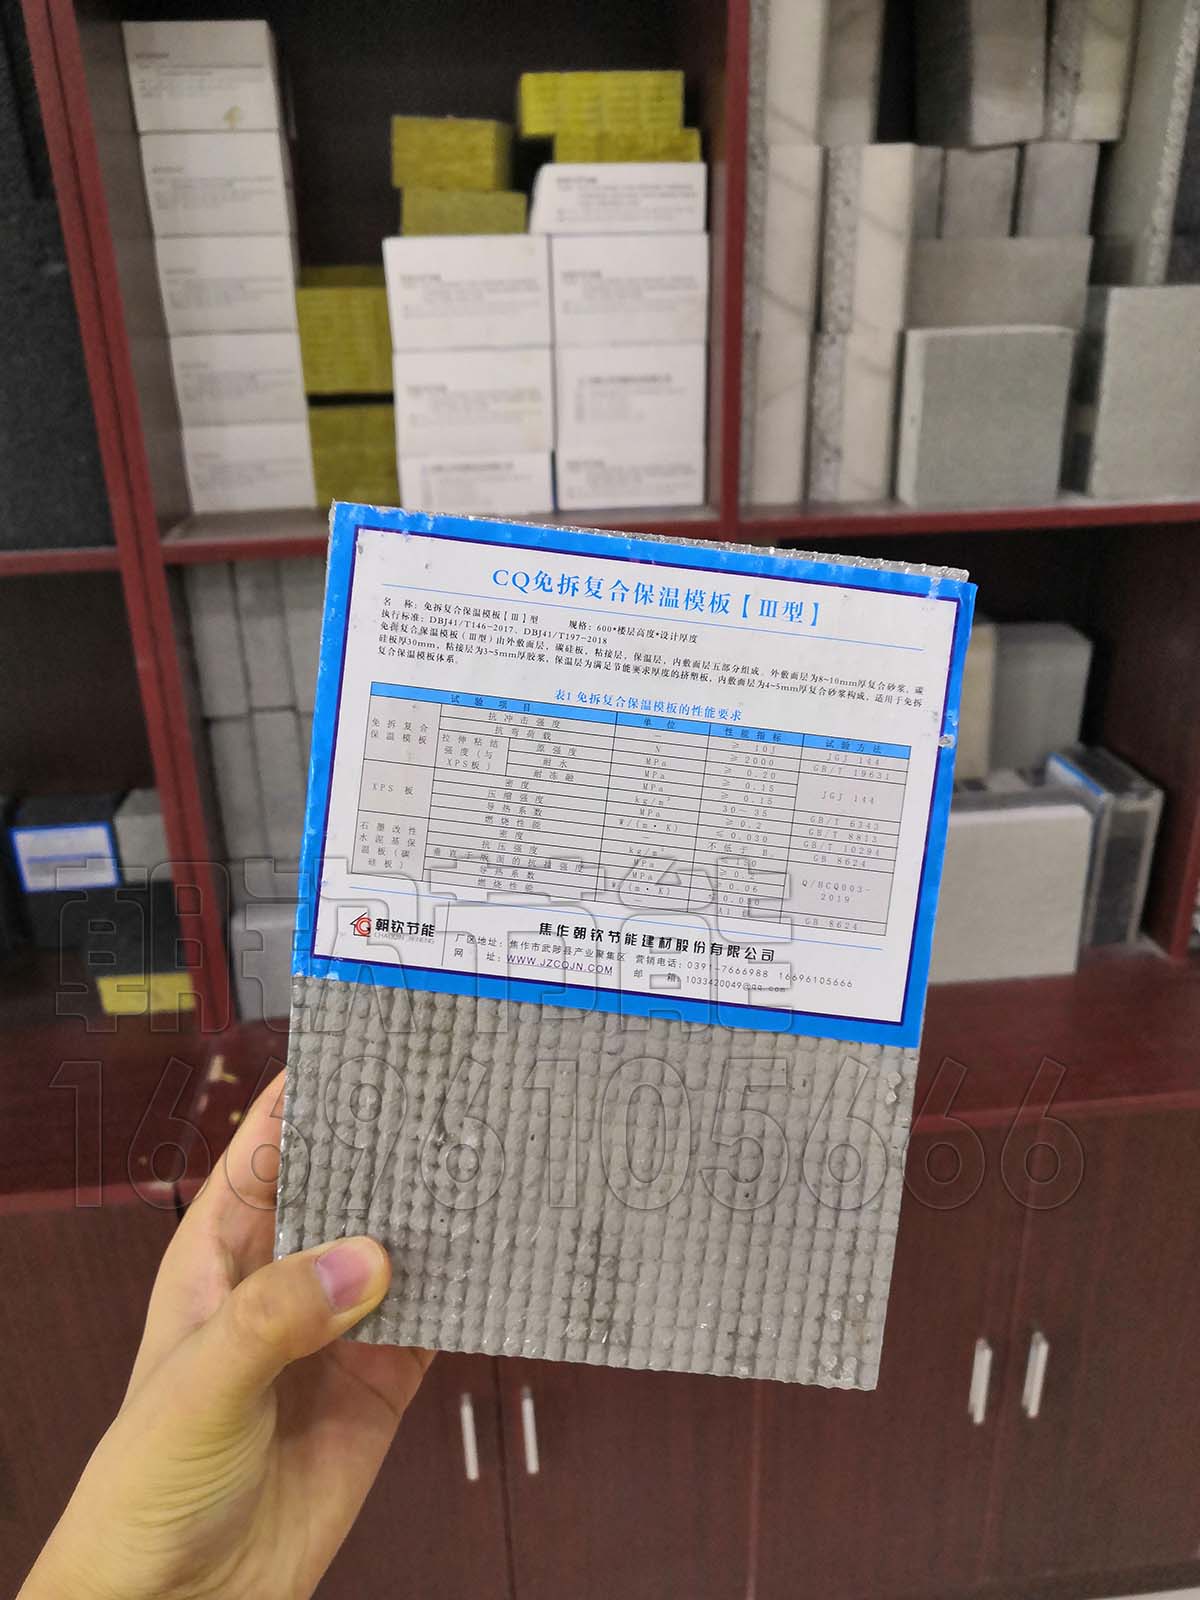 CQ免拆复合保温模板【Ⅲ型】
名 称：免拆复合保温模板【Ⅲ】型 规格：600*楼层高度*设计厚度
执行标准：DBJ41/T146-2017、DBJ41/T197-2018
免拆复合保温模板（Ⅲ型）由外敷面层，碳硅板，粘接层，保温层，内敷面层五部分组成。外敷面层为8~10mm厚复合砂浆，碳
硅板厚30mm，粘接层为3~5mm厚胶浆，保温层为满足节能要求厚度的挤塑板，内敷面层为4~5mm厚复合砂浆构成，适用于免拆
复合保温模板体系。
表1 免拆复合保温模板的性能要求
试验项目 单位 性能指标 试验方法
免拆复合保温模板 抗冲击强度 — ≥ 10J JGJ 144
抗弯荷载 N ≥2000 GB/T 19631
拉伸粘结强度（与XPS板） 原强度 MPa ≥ 0.20 JGJ 144
耐水 MPa ≥ 0.15
耐冻融 MPa ≥ 0.15
XPS 板 密度 kg/m³ 30~35 GB/T 6343
压缩强度 MPa ≥0.2 GB/T 8813
导热系数 W/(m·K) ≤ 0.030 GB/T 10294
燃烧性能 不低于 B GB 8624
石墨改性水泥基保温板（碳硅板） 密度 kg/m³ 130 Q/HCQ003-2019
抗压强度 MPa
垂直于版面的抗拉强度 0.06
导热系数 W/(m·K)
燃烧性能 — A1 GB 8624
朝钦节能
CHAOQIN JIENENG
焦作朝钦节能建材股份有限公司
厂区地址：焦作市武陟县产业聚集区 营销电话：0391-7666988 16696105666
网 址：WWW.JZCQJN.COM 邮 箱：1033420049@qq.com
朝钦节能
16696105666